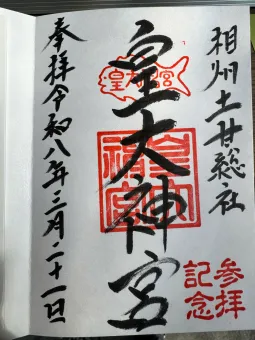 相州土甘総社
参拝
記念
皇大神宮
皇大神宮
奉拝令和八年三月二十一日